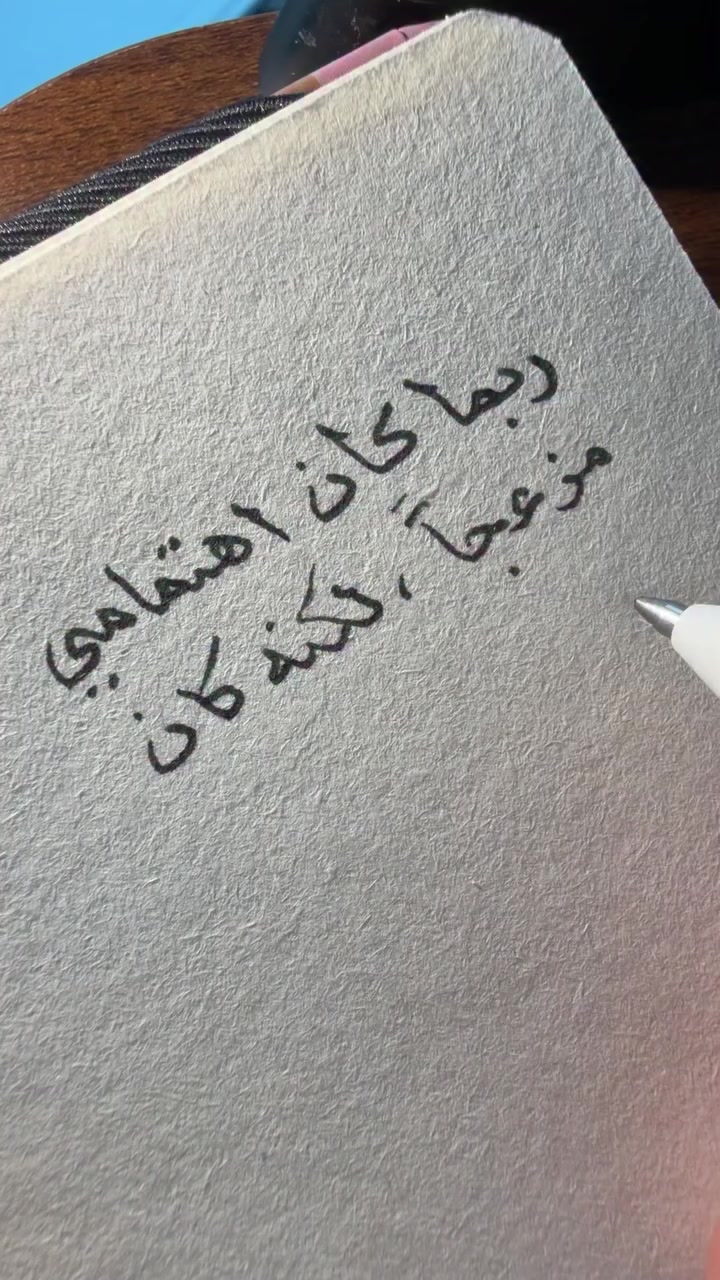 ربما كان اهتمامي
مزعجاً، لكنه كان